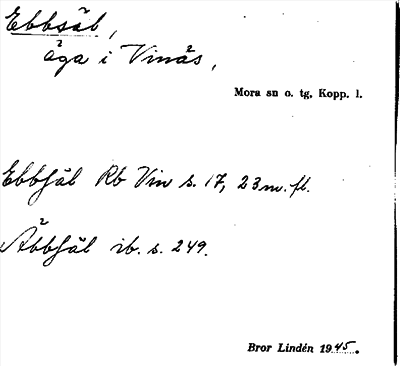 Ebbsäl,
äga i Vinäs,
Mora sn o. tg, Kopp. l.
Ebbsäl Rb Vin s. 17, 23 m. fl.
Äbbsäl ib. s. 249.
Bror Lindén 1945.